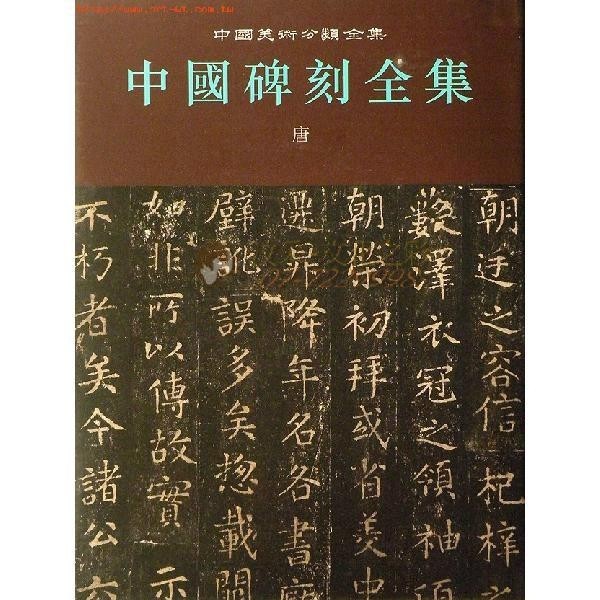 中國美術分類全集
中國碑刻全集
唐
朝廷之容信杞梓
藪澤衣冠之領袖
朝榮初拜或省美中
遷昇降年名各書
壁訛誤多矣揔載
如非所以傳故實示
不朽者矣今諸公